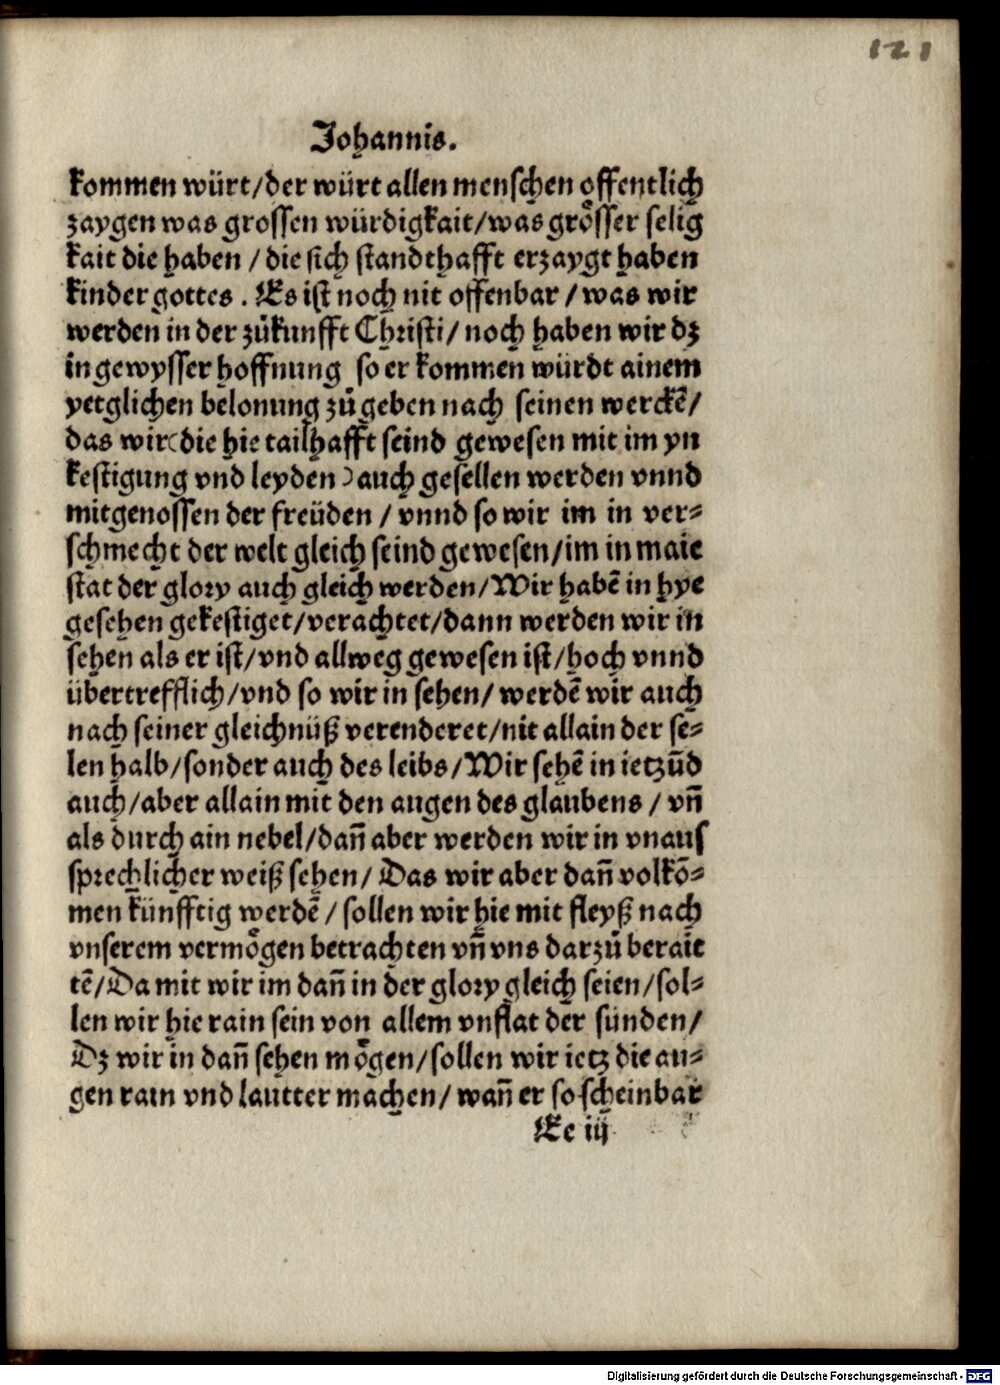 121
Johannis.
kommen würt/der würt allen menschen offentlich
zaygen was grossen würdigkait/was grösser selig
kait die haben / die sich standthafft erzaygt haben
kinder gottes . Es ist noch nit offenbar / was wir
werden in der zůkunfft Christi/ noch haben wir dz
in gewysser hoffnung so er kommen würdt ainem
yetglichen belonung zůgeben nach seinen werckē/
das wir(die hie tailhafft seind gewesen mit im yn
kestigung vnd leyden )auch gesellen werden vnnd
mitgenossen der freüden / vnnd so wir im in ver⸗
schmecht der welt gleich seind gewesen/im in maie
stat der glory auch gleich werden/Wir habē in hye
gesehen gekestiget/verachtet/dann werden wir in
sehen als er ist/vnd allweg gewesen ist/hoch vnnd
übertrefflich/vnd so wir in sehen/ werdē wir auch
nach seiner gleichnüß verenderet/nit allain der se⸗
len halb/sonder auch des leibs/Wir sehē in ietzūd
auch/aber allain mit den augen des glaubens / vn̄
als durch ain nebel/dan̄ aber werden wir in vnaus
sprechlicher weiß sehen/ Das wir aber dan̄ volkō⸗
men künfftig werdē / sollen wir hie mit fleyß nach
vnserem vermögen betrachten vn̄ vns darzů berait
tē/Da mit wir im dan̄ in der glory gleich seien/sol⸗
len wir hie rain sein von allem vnflat der sünden/
Dz wir in dan̄ sehen mögen/sollen wir ietz die au⸗
gen rain vnd lautter machen/ wan̄ er so scheinbar
Ee iij
Digitalisierung gefördert durch die Deutsche Forschungsgemeinschaft - DFG